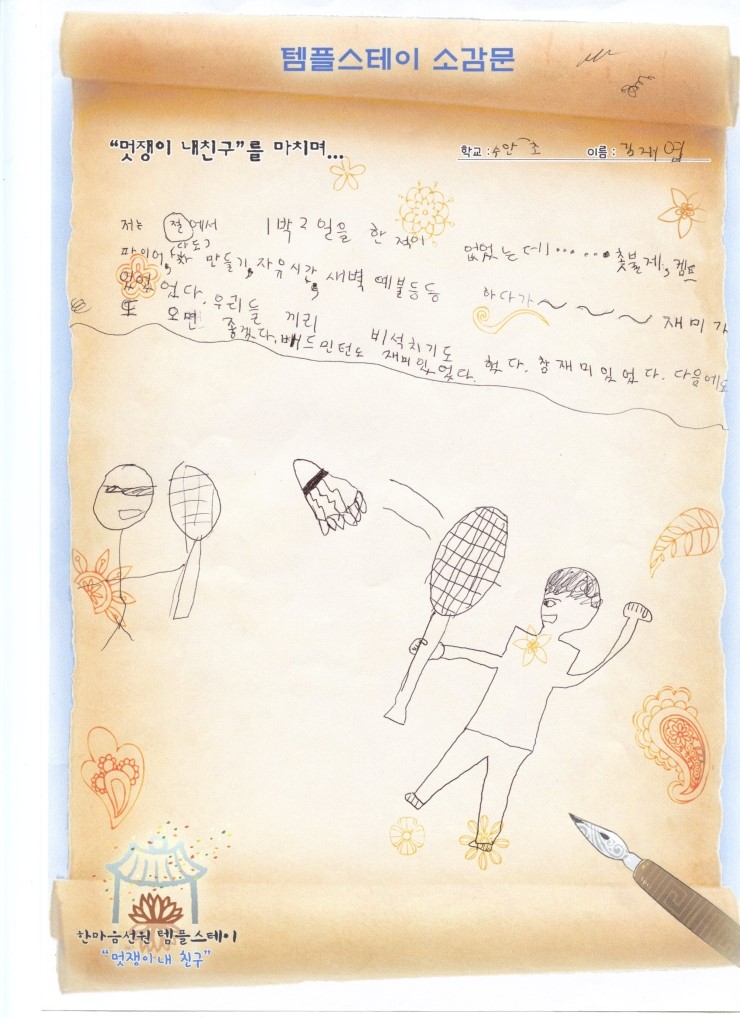 템플스테이 소감문
“멋쟁이 내친구”를 마치며...
학교 : 수안 초 이름 : 김재엽
저는 절에서 1박 2일을 한 적이 없었는데…… 촛불제, 캠프
파이어, 다도, 만들기, 자유시간, 새벽 예불등등 하다가~~~ 재미가
있었다. 우리들 끼리 비석치기도 했다. 참 재미있었다. 다음에도
또 오면 좋겠다. 배드민턴도 재미있었다.
한마음선원 템플스테이
“멋쟁이 내 친구”